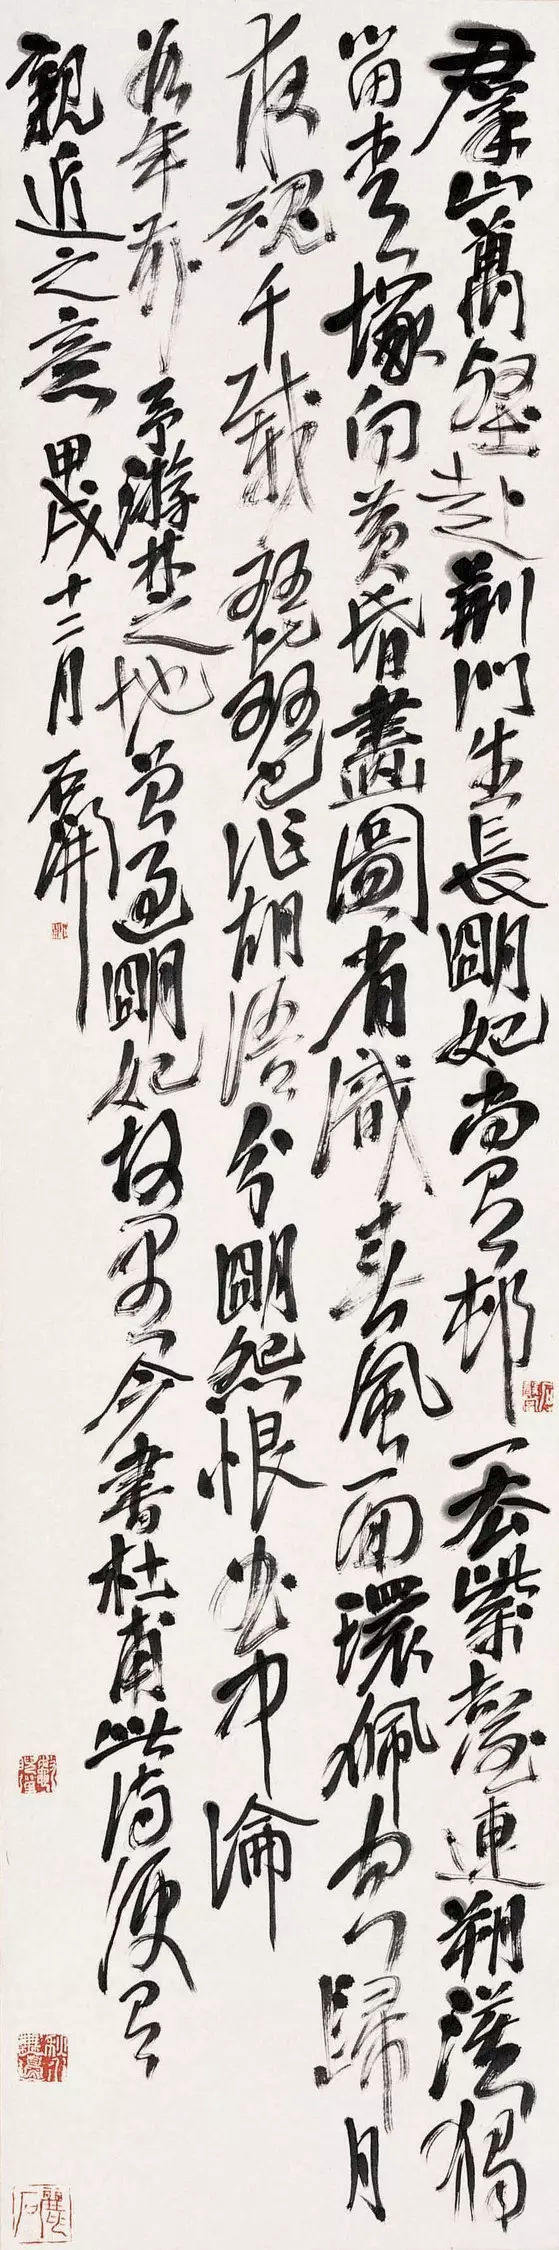 羣山萬壑赴荆門生長朙妃尚有邨一去紫臺連朔漠獨
留青塚向黄昏畫圖省識春風面環佩空歸月
夜魂千載琵琶作胡語分朙怨恨曲中論
年前予游楚之地曾過朙妃故里今書杜甫此詩便有
親近之意甲戌十二月石開